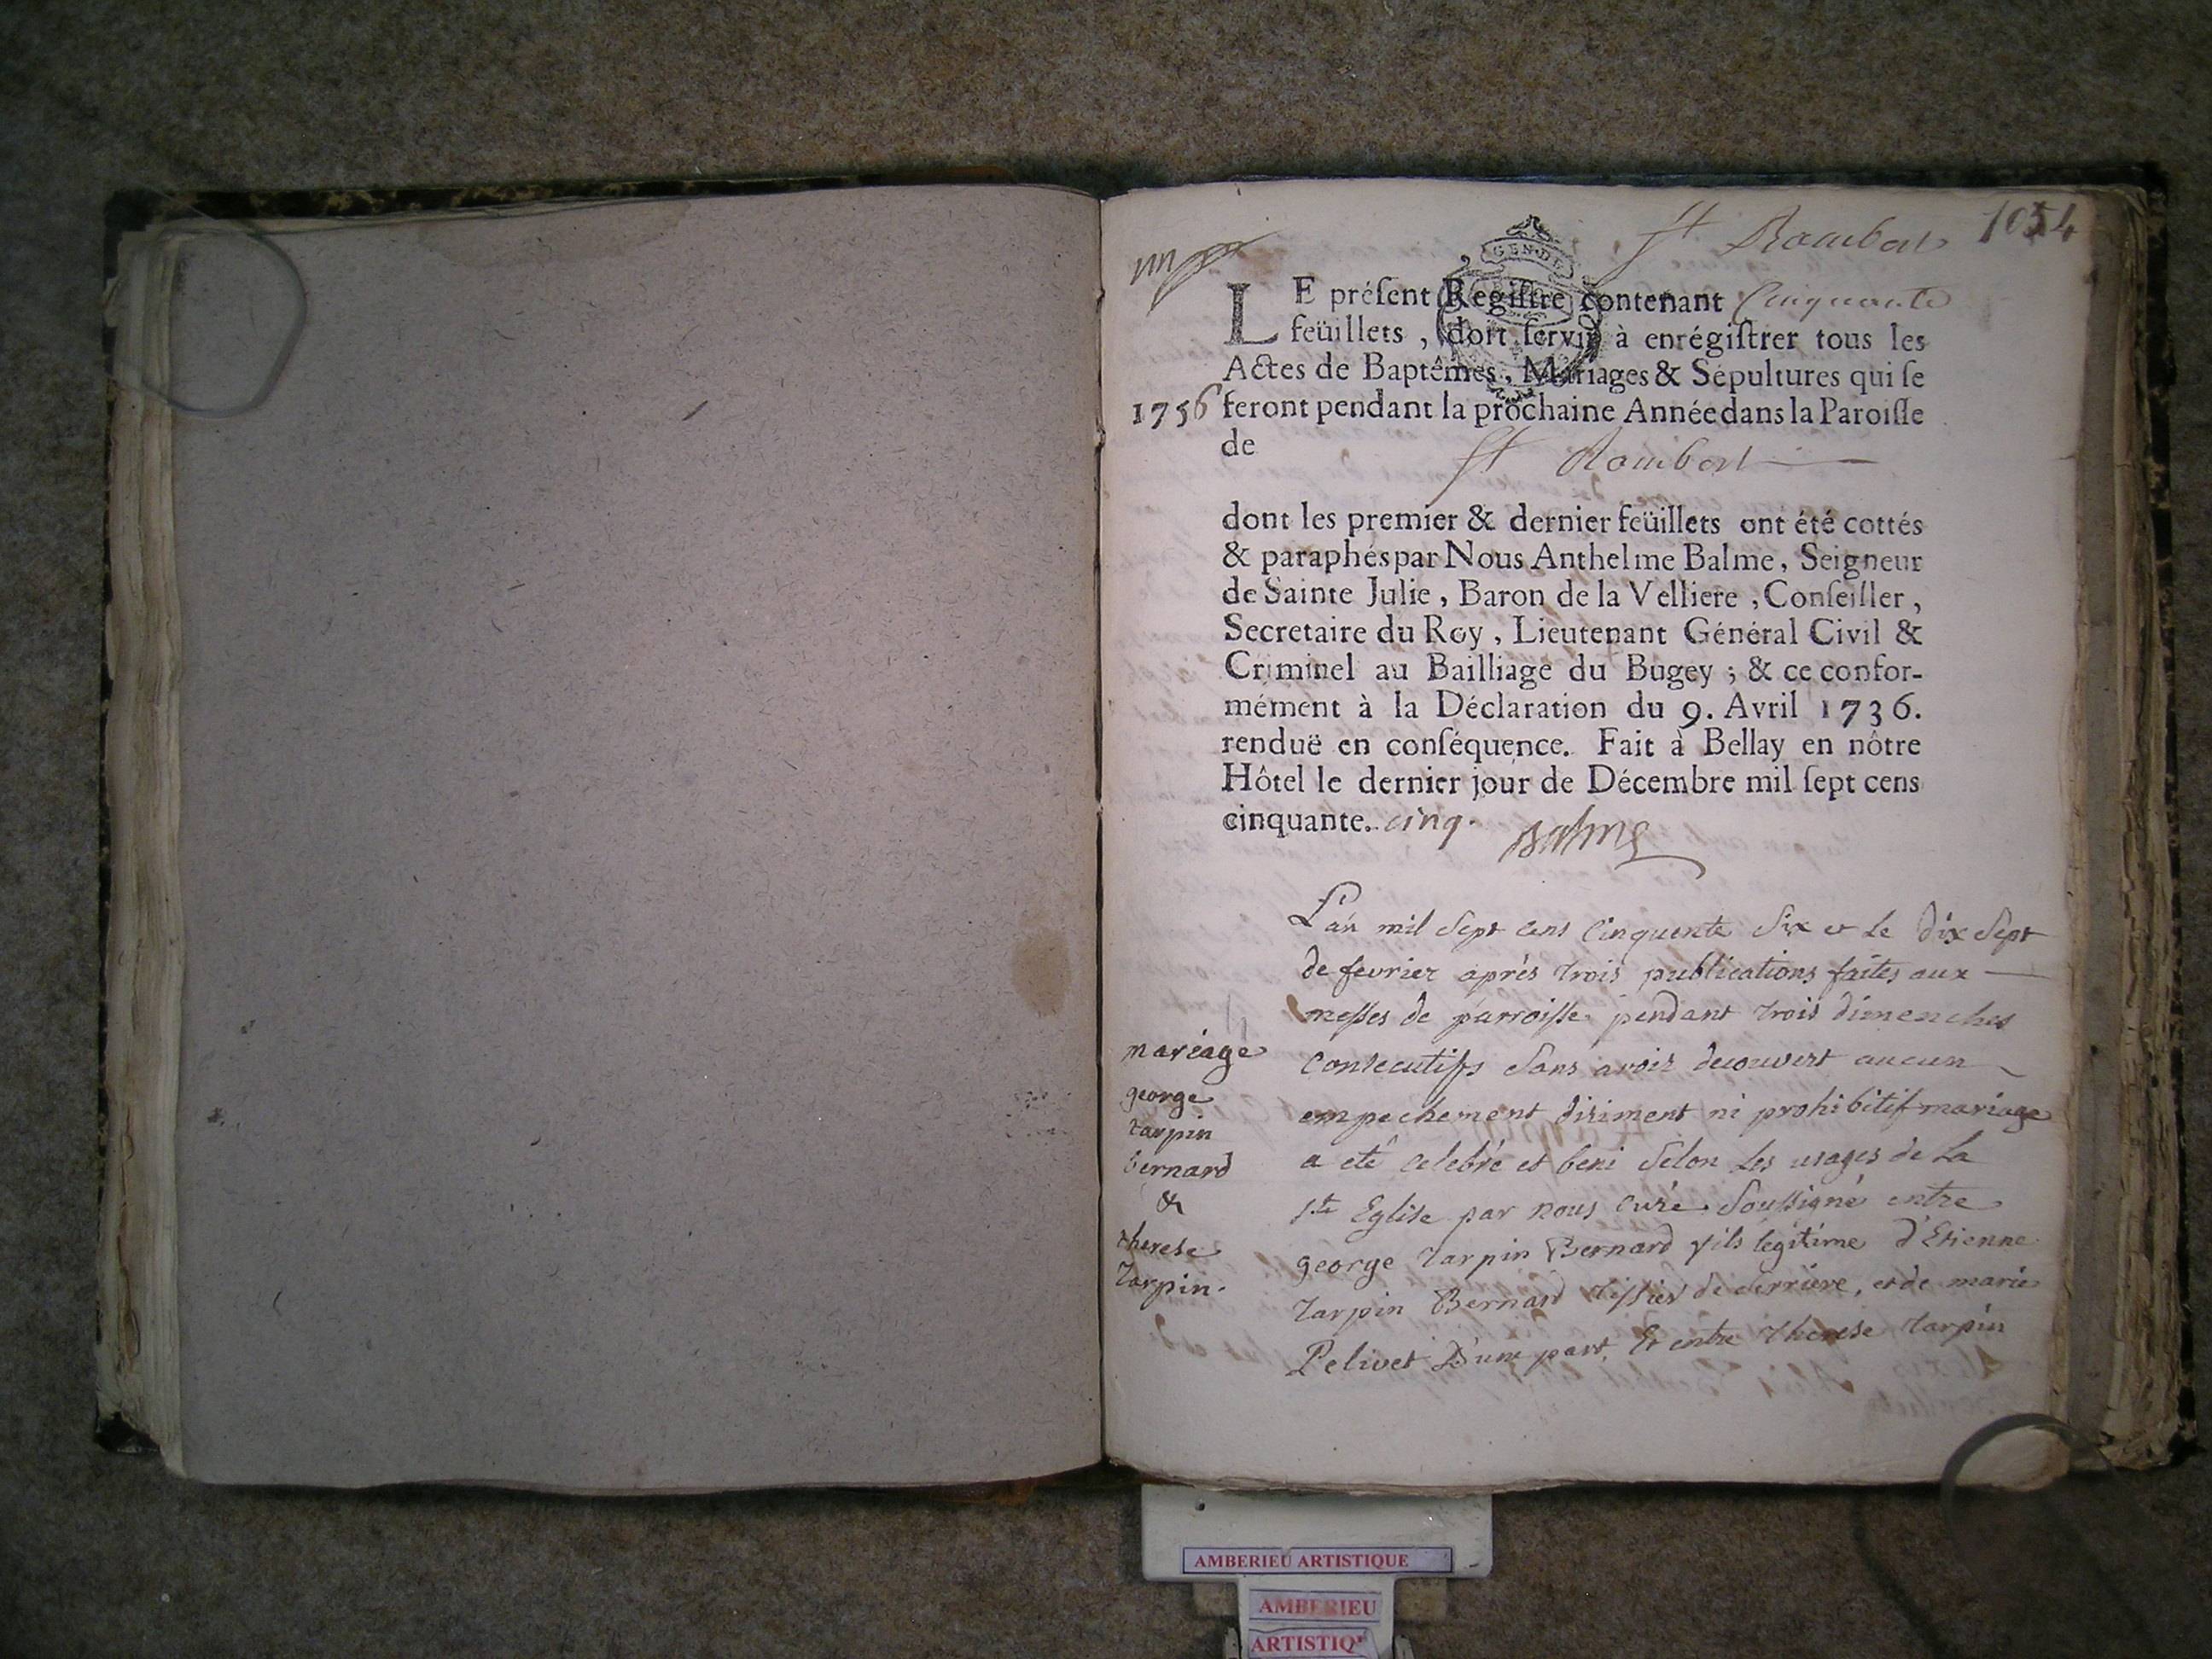 St Rambert 1054
GEN·DE
LE préſent Regiſtre contenant Cinquante
feüillets, doit ſervir à enrégiſtrer tous les
Actes de Baptêmes, Mariages & Sépultures qui ſe
1756 feront pendant la prochaine Année dans la Paroiſſe
de St Rambert
dont les premier & dernier feüillets ont été cottés
& paraphés par Nous Anthelme Balme, Seigneur
de Sainte Julie, Baron de la Velliere, Conſeiller,
Secretaire du Roy, Lieutenant Général Civil &
Criminel au Bailliage du Bugey; & ce confor-
mément à la Déclaration du 9. Avril 1736.
renduë en conſéquence. Fait à Bellay en nôtre
Hôtel le dernier jour de Décembre mil ſept cens
cinquante. cinq.
Balme
L'an mil Sept cens Cinquente Six et le dix Sept
de fevrier après trois publications faites aux
messes de parroisse pendant trois dimenches
Consecutifs Sans avoir decouvert aucun
empechement diriment ni prohibitif mariage
a eté celebré et beni Selon les usages de La
ste Eglise par nous curé Soussigné entre
george tarpin Bernard fils legitime d'Etienne
tarpin Bernard tissier de Serriere, et de marie
Pelivet D'une part, Et entre therese tarpin
mariage
george
tarpin
bernard
&
therese
tarpin.
AMBERIEU ARTISTIQUE
AMBERIEU
ARTISTIQ